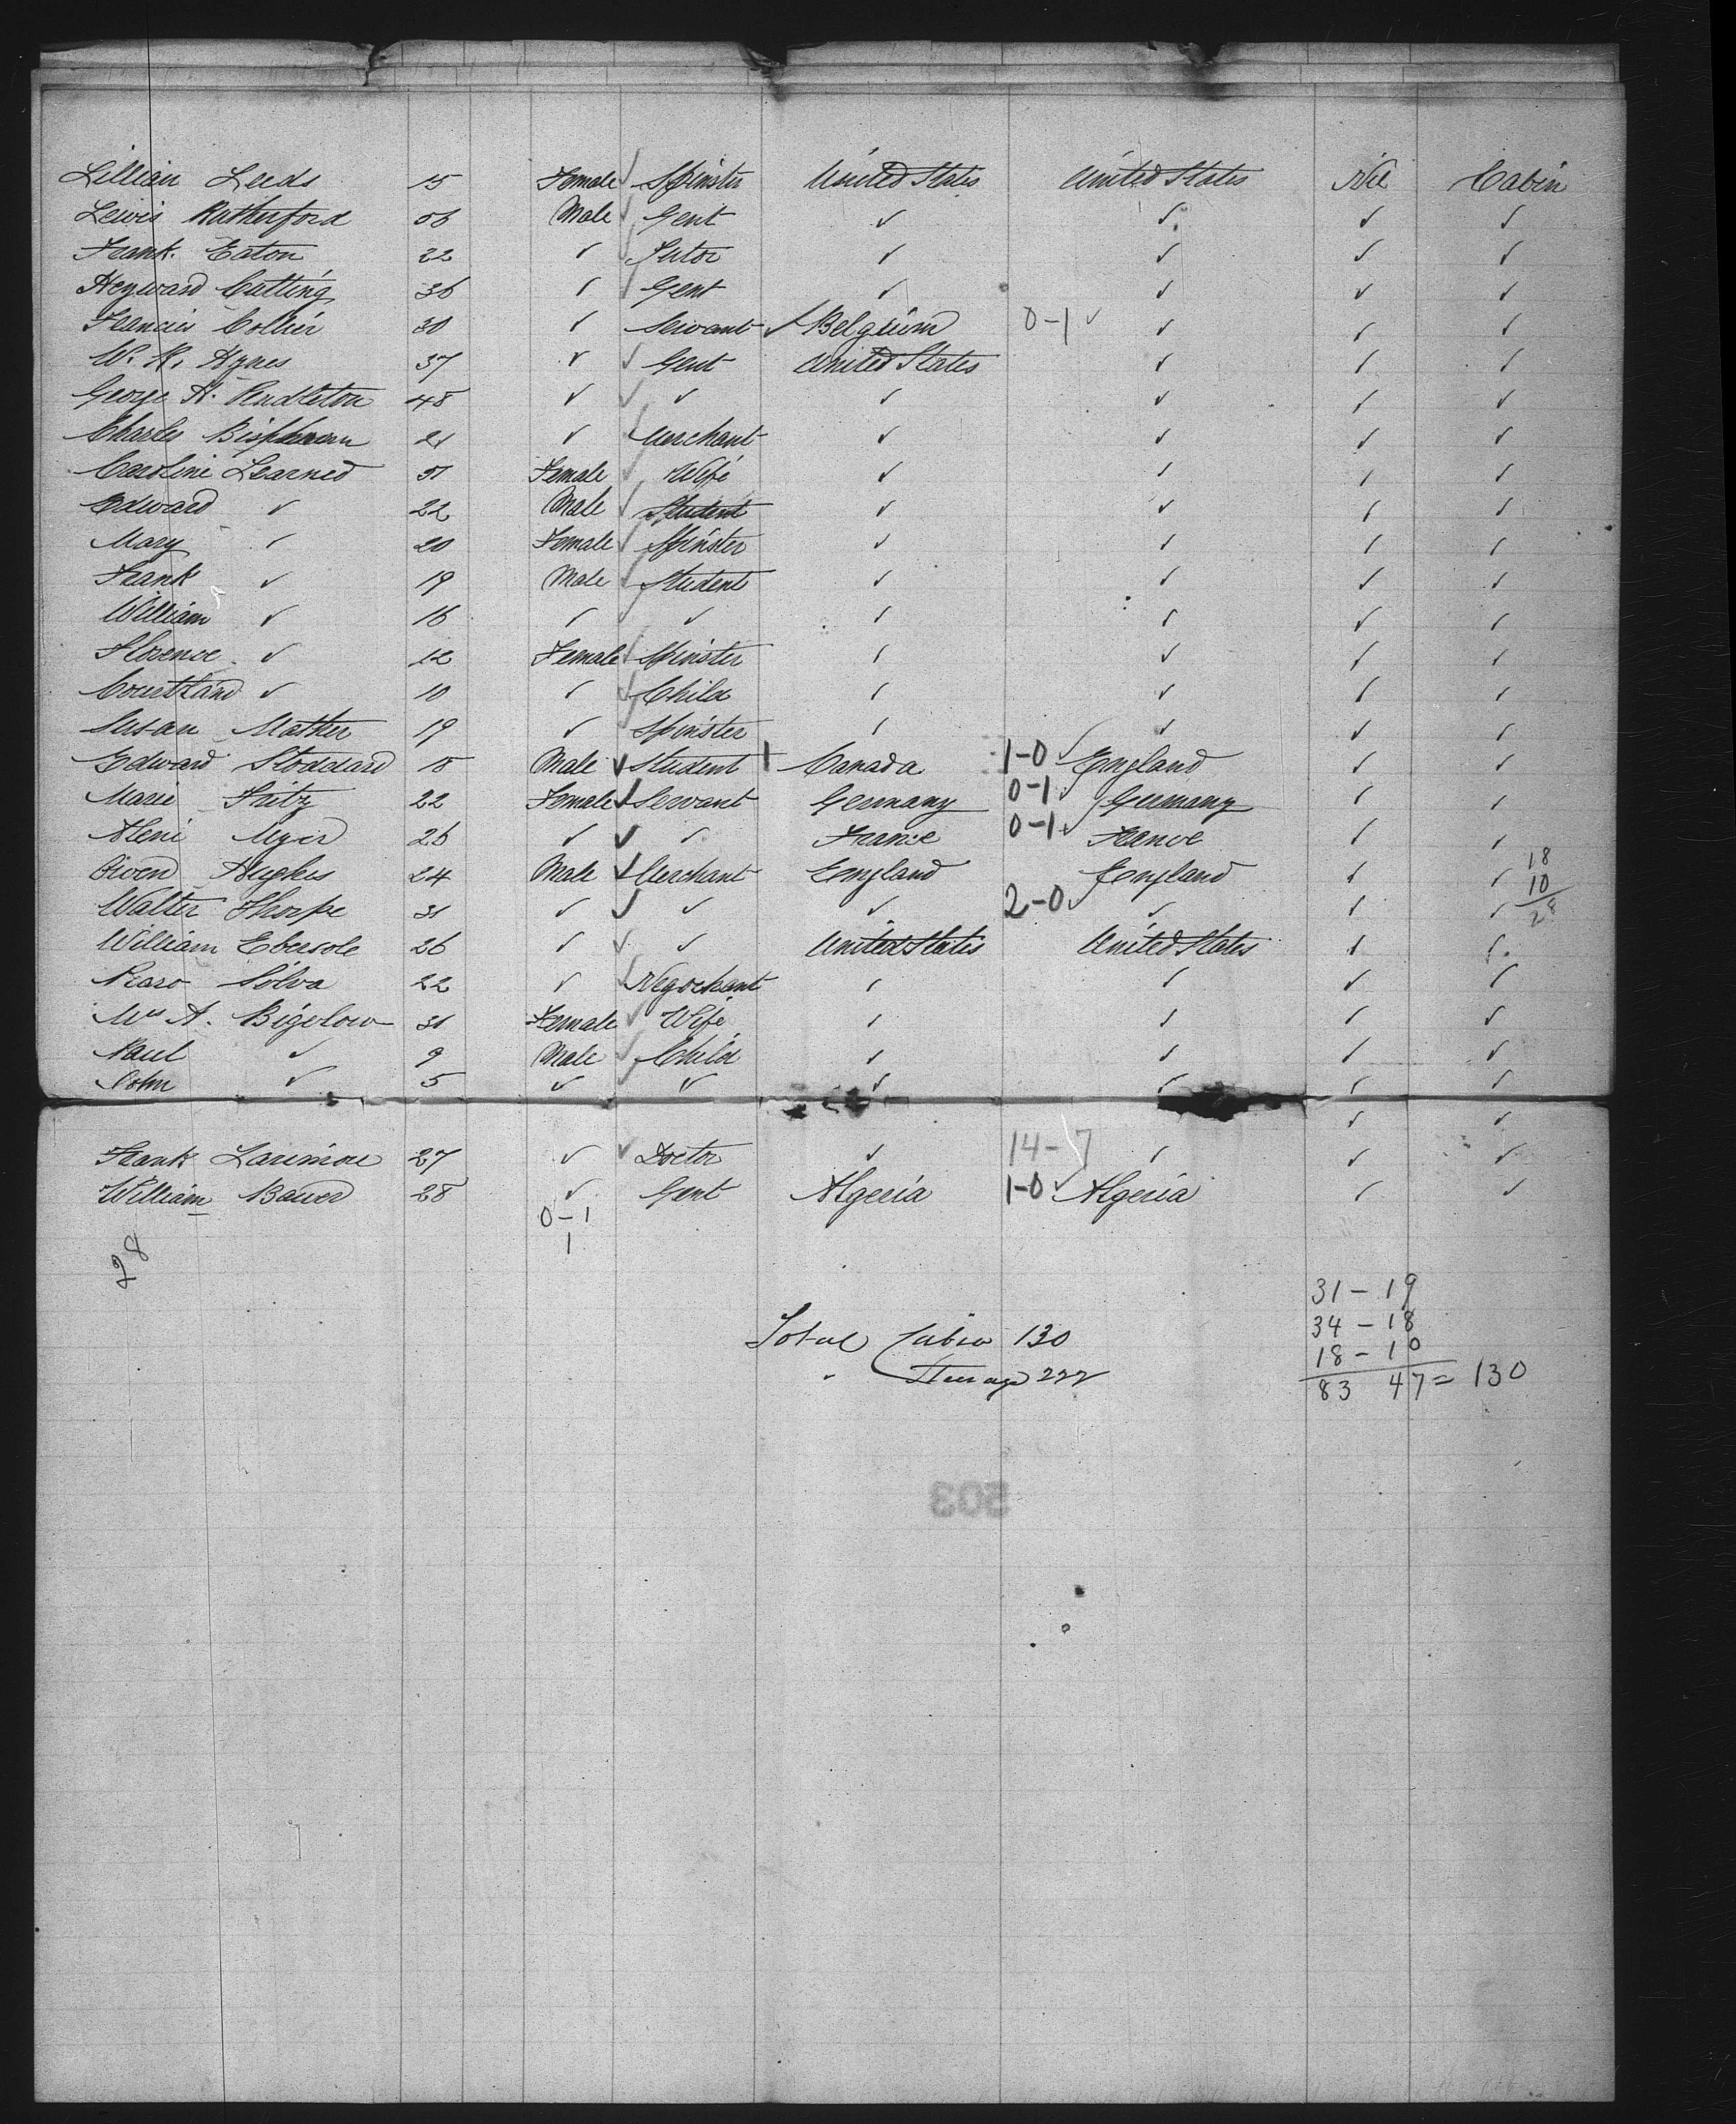 Lillian Leeds 15 Female ✓ Spinster United States United States Nil Cabin
Lewis Rutherford 56 Male ✓ Gent ✓ ✓ ✓ ✓
Frank. Eaton 22 ✓ ✓ Tutor ✓ ✓ ✓ ✓
Heyward Cutting 36 ✓ ✓ Gent ✓ ✓ ✓ ✓
Francis Collier 30 ✓ Servant ✓ Belgium 0-1 ✓ ✓ ✓ ✓
W. R. Hynes 37 ✓ ✓ Gent United States ✓ ✓ ✓
George H. Pendleton 48 ✓ ✓ ✓ ✓ ✓ ✓ ✓
Charles Bispham 21 ✓ Merchant ✓ ✓ ✓ ✓
Caroline Learned 51 Female ✓ Wife ✓ ✓ ✓ ✓
Edward ✓ 22 Male ✓ Student ✓ ✓ ✓ ✓
Mary ✓ 20 Female ✓ Spinster ✓ ✓ ✓ ✓
Frank ✓ 19 Male ✓ Student ✓ ✓ ✓ ✓
William ✓ 16 ✓ ✓ ✓ ✓ ✓ ✓ ✓
Florence ✓ 12 Female ✓ Spinster ✓ ✓ ✓ ✓
Courtland ✓ 10 ✓ ✓ Child ✓ ✓ ✓ ✓
Susan Mather 19 ✓ Spinster ✓ ✓ ✓ ✓
Edward Stoddard 18 Male ✓ Student 1 Canada 1-0 ✓ England ✓ ✓
Marie Fritz 22 Female ✓ Servant Germany 0-1 ✓ Germany ✓ ✓
Myer 26 ✓ ✓ ✓ France 0-1 ✓ France ✓ ✓
Owen Hughes 24 Male ✓ Merchant England England ✓ ✓ 18
10
Walter Thorpe 31 ✓ ✓ ✓ ✓ 2-0 ✓ ✓ ✓ ✓ 28
William Ebersole 26 ✓ ✓ ✓ United States United States ✓ ✓
Silva 22 ✓ ✓ Negochant ✓ ✓ ✓ ✓
Mrs A. Bigelow 31 Female ✓ Wife ✓ ✓ ✓ ✓
Paul ✓ 9 Male ✓ Child ✓ ✓ ✓ ✓
John ✓ 5 ✓ ✓ ✓ ✓ ✓ ✓
✓ ✓
Frank Larimore 27 ✓ ✓ Doctor ✓ 14-7 ✓ ✓ ✓
William Bauer 28 ✓ Gent Algeria 1-0 ✓ Algeria ✓ ✓
0-1
1
28
31-19
34-18
18-10
83 47 = 130
Total Cabin 130
✓ Steerage 222
503